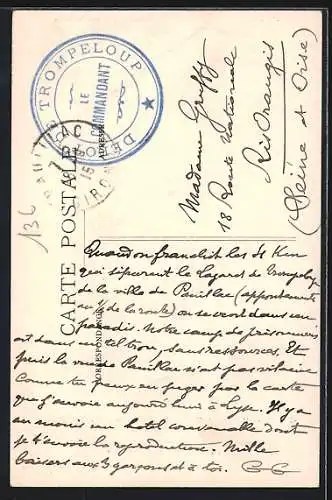 DÉPÔT DE TROMPELOUP
LE
COMMANDANT
PAUILLAC
15
GIRONDE
CARTE POSTALE
ADRESSE
CORRESPONDANCE
136
Madame Gruffy
18 Route Nationale
Ris Orangis
(Seine et Oise)
Quand on franchit les Km
qui séparent le Lazaret de Trompeloup
de la ville de Pauillac (appontements
au ½ de la route) on se croit dans un
paradis. Notre camp de prisonniers
est dans un tel trou, sans ressources. Et
puis la vue de Pauillac n'est pas vilaine
comme tu peux en juger par la carte
que j'envoie aujourd'hui à Lyse. Il y a
au moins un hotel convenable dont
je t'envoie la reproduction. Mille
baisers aux 3 garçons et à toi.